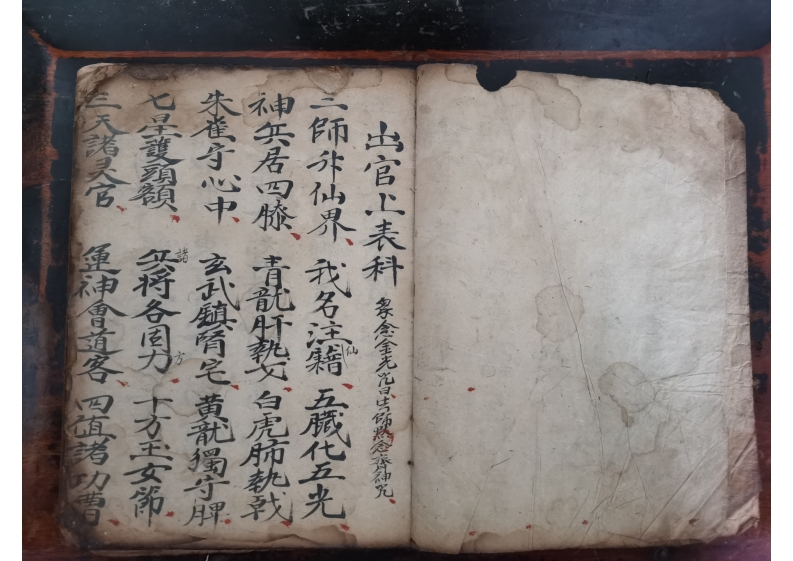 出官上表科 衆念金光咒曰 師黙念齊神咒
三師外仙界 我名注籍仙 五臟化五光
神兵居四滕 青龍肝執戈 白虎肺執戟
朱雀守心中 玄武鎮腎宅 黄龍獨守脾
七星護頭額 兵將各固力 十方玉女節
諸 方
三天諸灵官 運神會道客 四值諸功曹